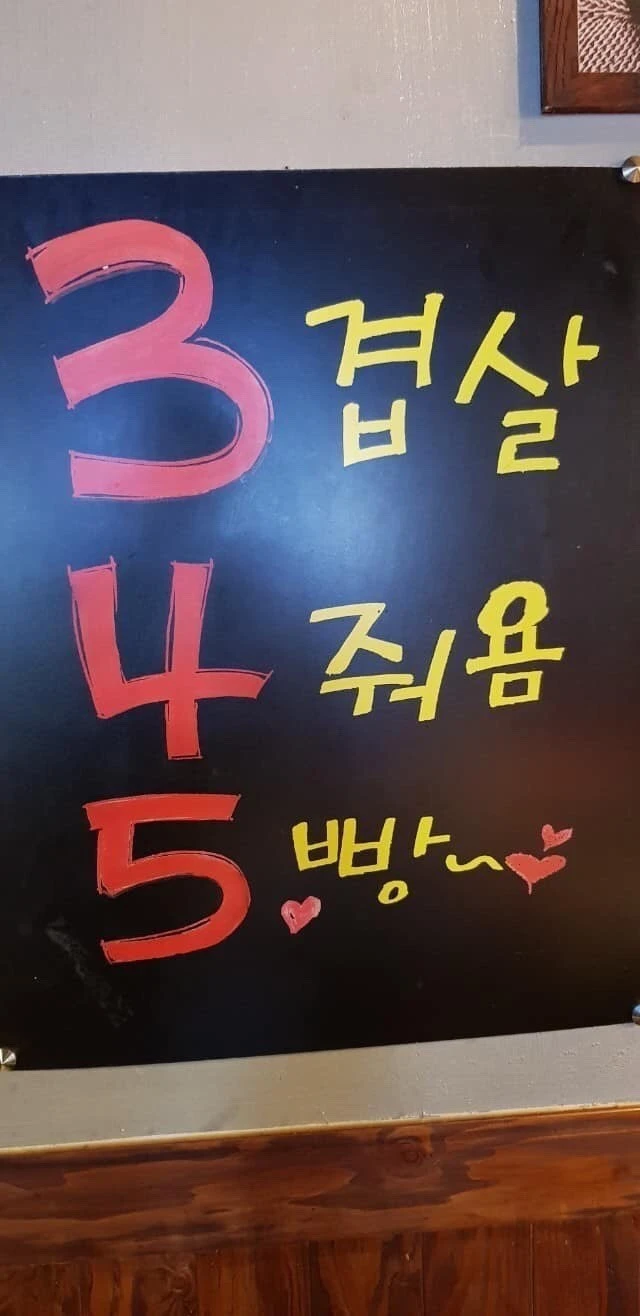 3겹살
4줘욤
5빵~